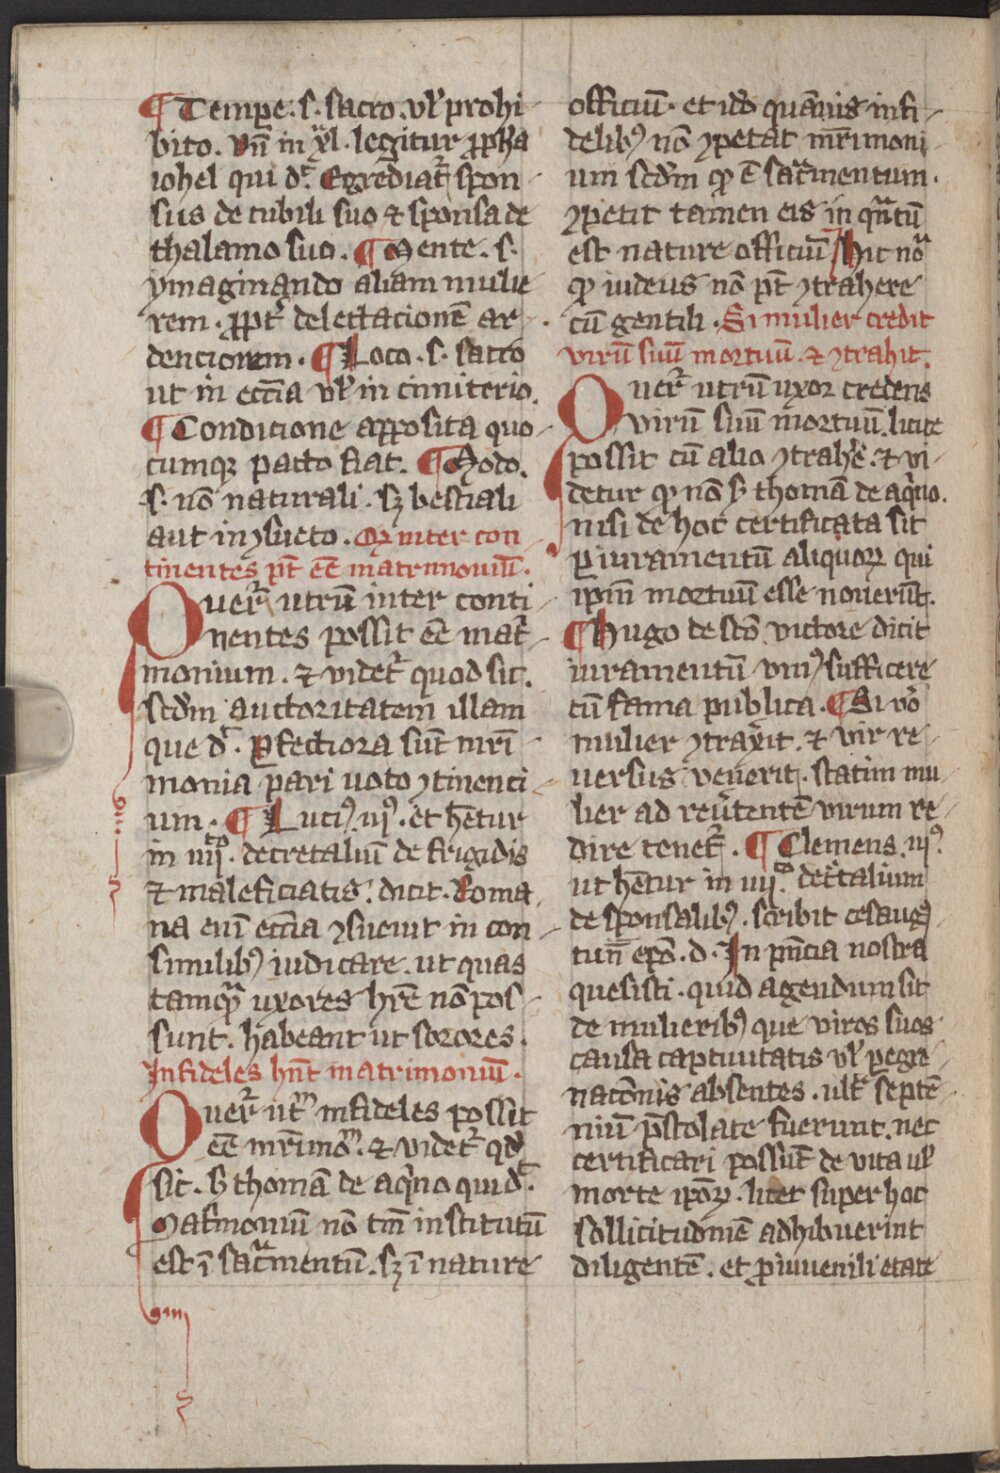 ¶ Tempe . s . sacro . vl' prohi
bito . vn̄ in xl . legitur ꝓpħa
iohel qui dt̄ . Egrediat᷑ spon
sus de cubili suo ⁊ sponsa de
thalamo suo . ¶ Mente . s .
ymaginando aliam mulie
rem . ꝓpt᷑ delectacionē ar
dencionem . ¶ Loco . s . sacro
ut in ecc̄ia vl' in cimiterio .
¶ Condicione apposita quo
cumqꝫ pacto fiat . ¶ Modo .
s . nō naturali . sꝫ bestiali
aut inꝯsueto . Qꝫ inter con
tinentes pt̄ ēē matrimoniū .
Querit᷑ utrū inter conti
nentes possit ēē mat᷑
monium . ⁊ videt᷑ quod sit .
scd̄m auctoritatem illam
que dt̄ . ꝑfectiora sūt mr̄i
monia pari uoto ꝯtinenci
um . ¶ Luciꝰ . iijꝰ . et hētur
in iiijto . decretaliū de frigidis
⁊ maleficiatis . dicit . Roma
na eni ecc̄ia ꝯsueuit in con
similibꝰ iudicare . ut quas
tamqᷓ uxores hr̄e nō pos
sunt . habeant ut sorores .
Infideles hn̄t matrimoniū .
Quer᷑ utᵐ infideles possit
ēē mr̄imoᵐ . ⁊ videt᷑ qd̄
sit . s̄ thomā de aq̄no qui dt̄ .
Mat᷑moniū nō tm̄ institutū
est ī sacᷓmentū . sꝫ ī nature
officiū . et iđo quāuis infi
delibꝰ nō ꝯpetat mr̄imoni
um scd̄m ꝙ ē sacᷓmentum .
ꝯpetit tamen eis in qᷓntū
est nature officiū Hic noᷓ
ꝙ iudeus nō pt̄ ꝯtrahere
cū gentili . Si mulier credit
virū suū mortuū . ⁊ ꝯtrahit .
Quer᷑ utrū uxor credens
virū suū mortuū . licite
possit cū alio ꝯtrahē᷑ . ⁊ vi
detur ꝙ nō s̄ thomā de aq̇no .
nisi de hoc certificata sit
ꝑ iuramentū aliquoꝝ qui
ip̄m mortuū esse nouerūt .
¶ Hugo de scō victore dicit
iuramentū vniꝰ sufficere
cū fama publica . ¶ Si vō
mulier ꝯtraxerit . ⁊ vir re
versus venerit . statim mu
lier ad reutentē virum re
dire tenet᷑ . ¶ Clemens . iijꝰ .
ut hētur in iiijto . dec᷑talium
de sponsalibꝰ . scribit cesaugꝰ
tun̄ ep̄o . d . In pn̄cia nostra
quesisti . quid agendum sit
de mulieribꝰ que viros suos
causa captiuitatis vl' ꝑegre
nacōnis absentes . ult᷑ septē
niū p̄stolate fuerunt . nec
certificari possūt de vita ul'
morte ip̄oꝝ . licet super hoc
sollicitudinē adhibuerint
diligentē . et ꝓ iuuenili etate